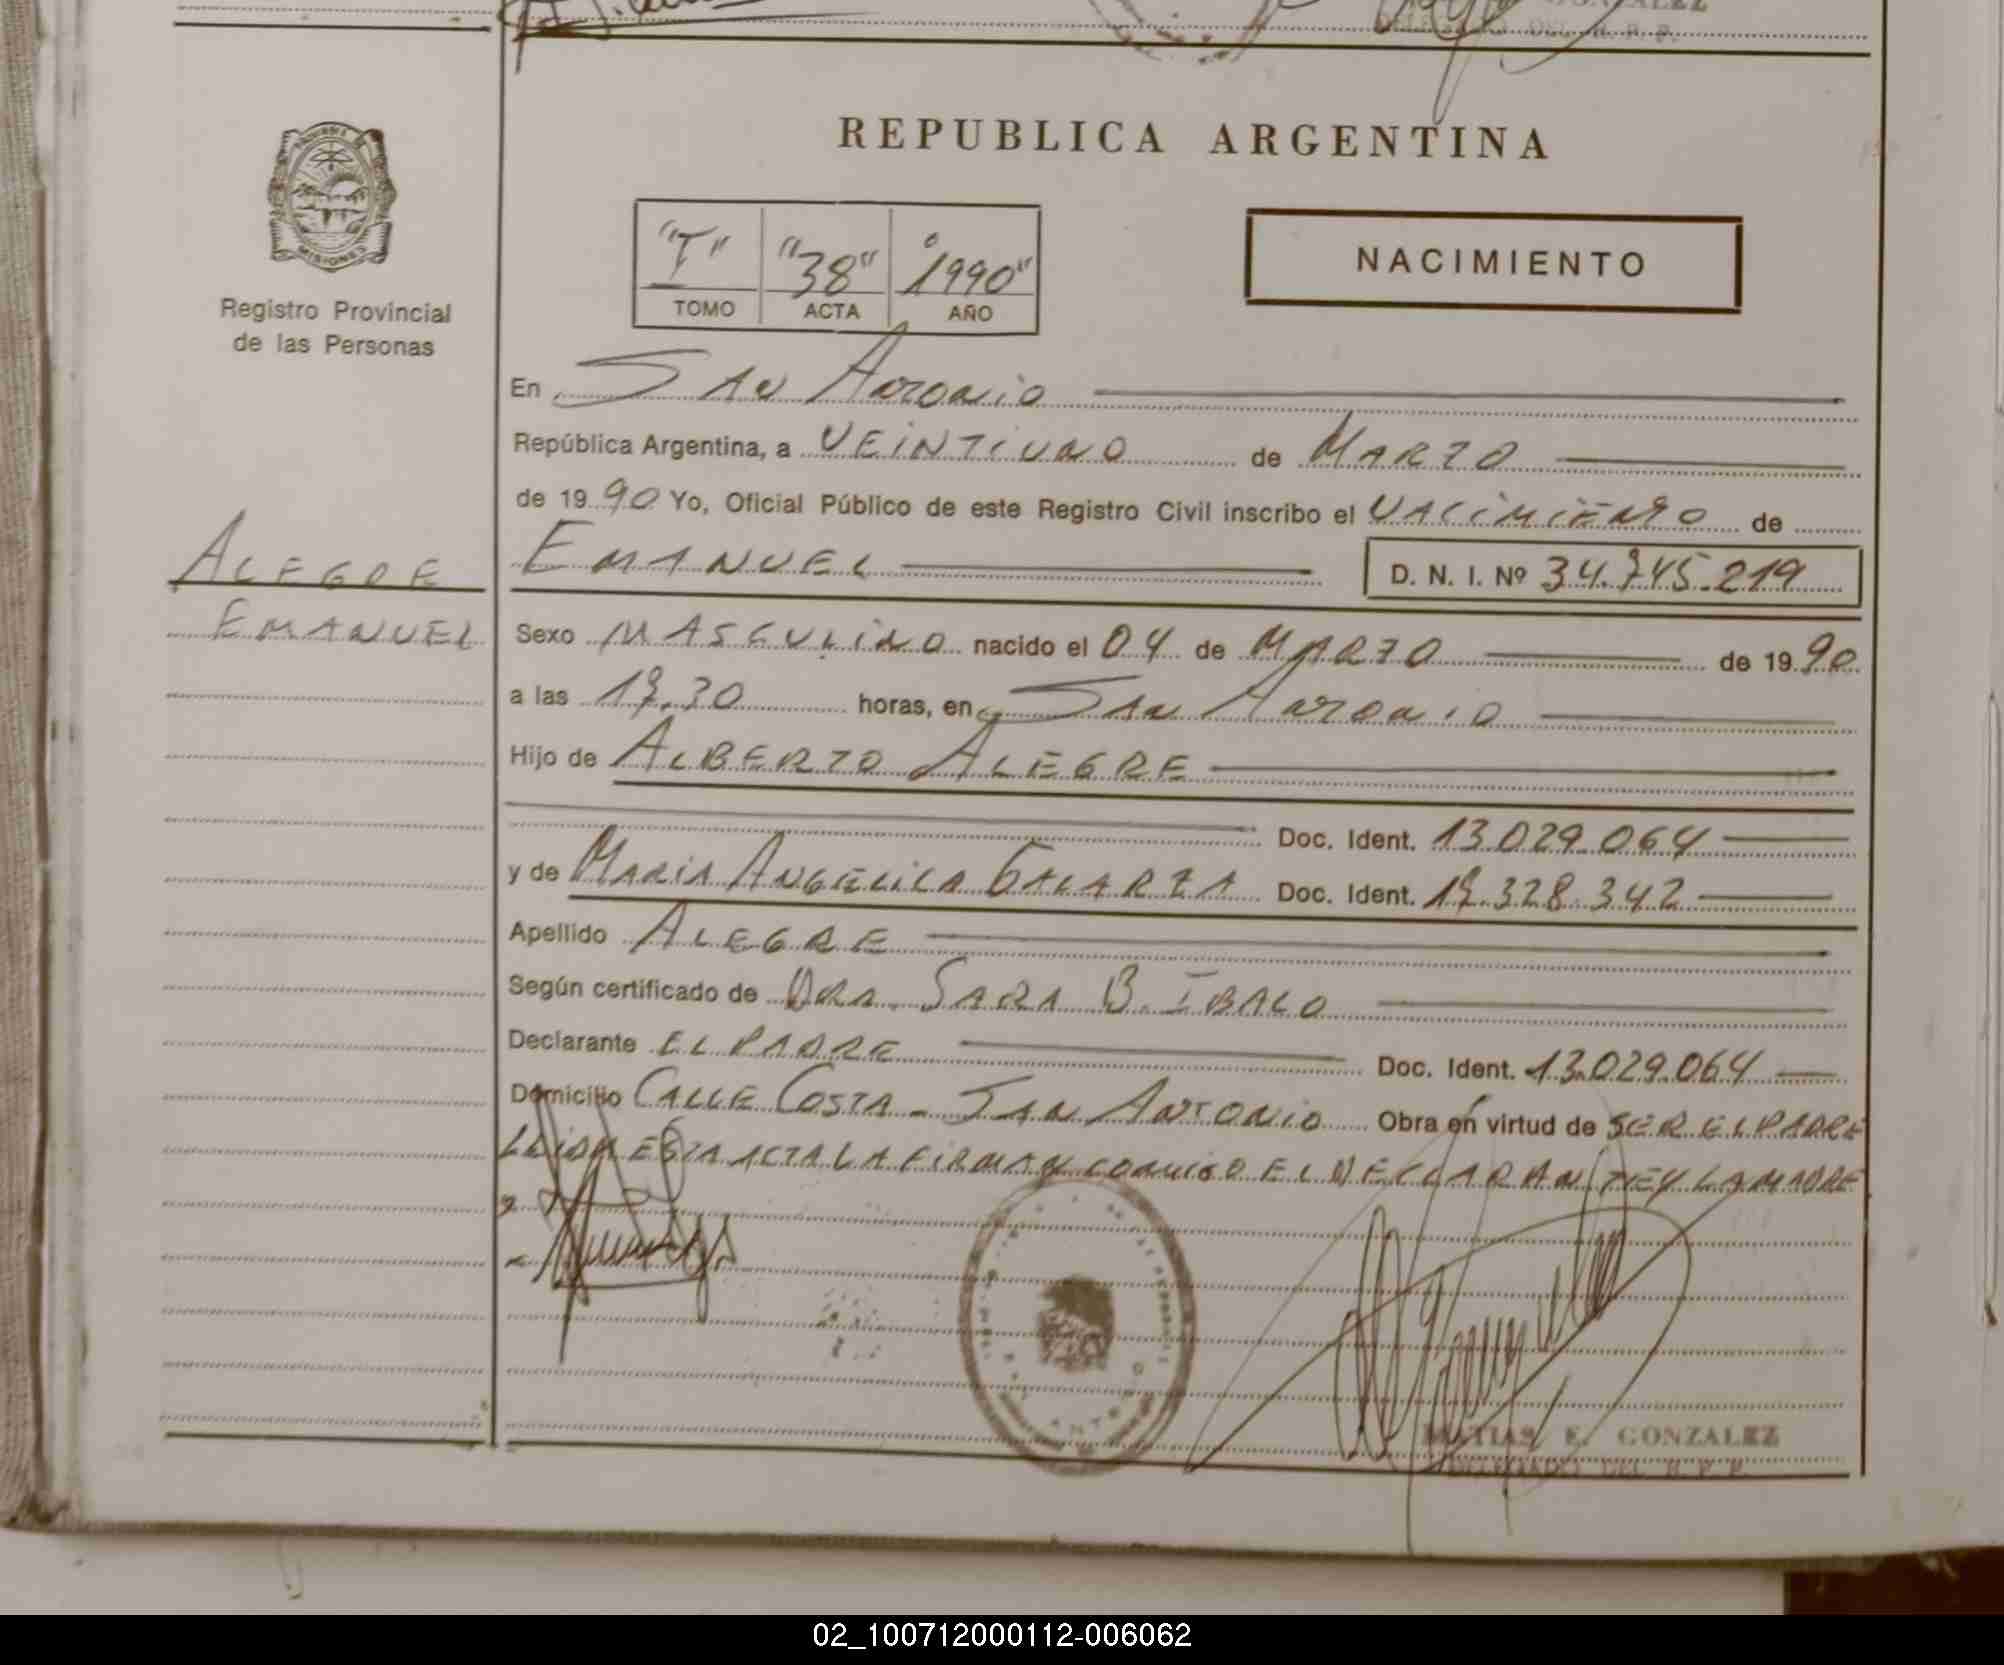 GONZALEZ
DELEGADO DEL R. P. P.
REPUBLICA ARGENTINA
MISIONES
Registro Provincial
de las Personas
"T" "38" "1990"
TOMO ACTA AÑO
NACIMIENTO
En SAN ANTONIO
República Argentina, a VEINTIUNO de MARZO
de 1990 Yo, Oficial Público de este Registro Civil inscribo el NACIMIENTO de
ALEGRE
EMANUEL D. N. I. Nº 34.745.219
EMANUEL
Sexo MASCULINO nacido el 04 de MARZO de 1990
a las 17.30 horas, en SAN ANTONIO
Hijo de ALBERTO ALEGRE
Doc. Ident. 13.029.064
y de MARIA ANGELICA GALARZA Doc. Ident. 17.328.342
Apellido ALEGRE
Según certificado de DRA. SARA B.
Declarante EL PADRE Doc. Ident. 13.029.064
Domicilio CALLE COSTA - SAN ANTONIO Obra en virtud de SER EL PADRE
LEIDA ESTA ACTA LA FIRMAN CONMIGO EL DECLARANTE Y LA MADRE
MATIAS E. GONZALEZ
DELEGADO DEL R. P. P.
02_100712000112-006062